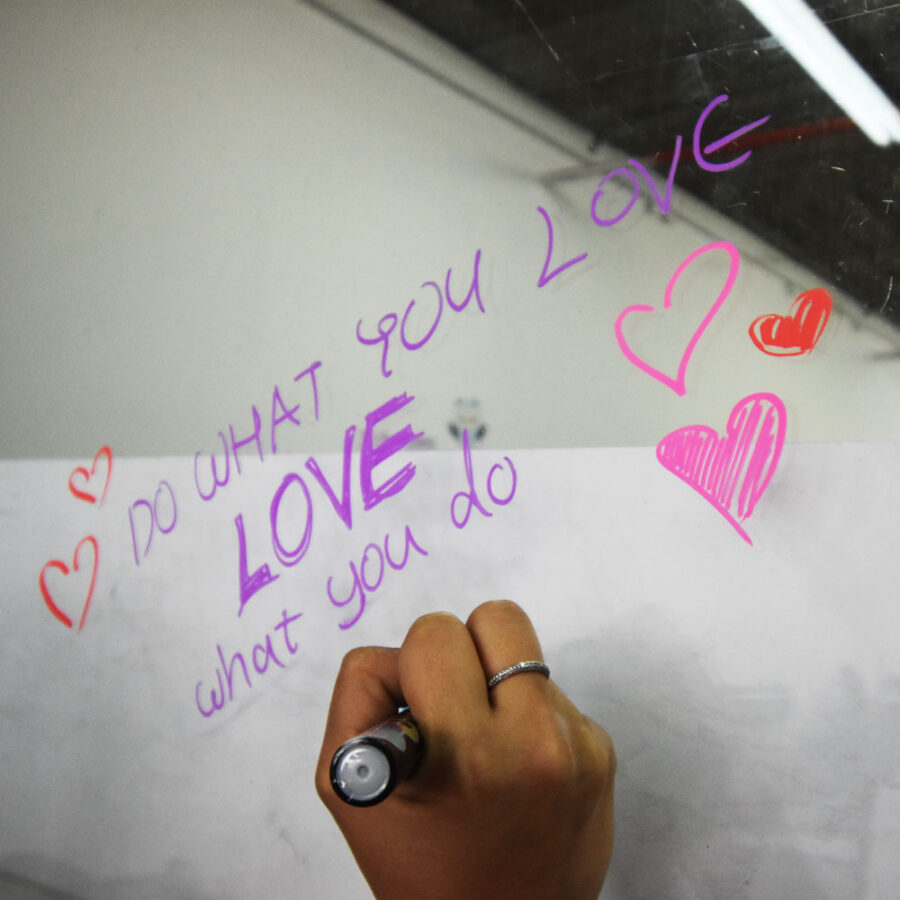 DO WHAT YOU LOVE
LOVE
what you do